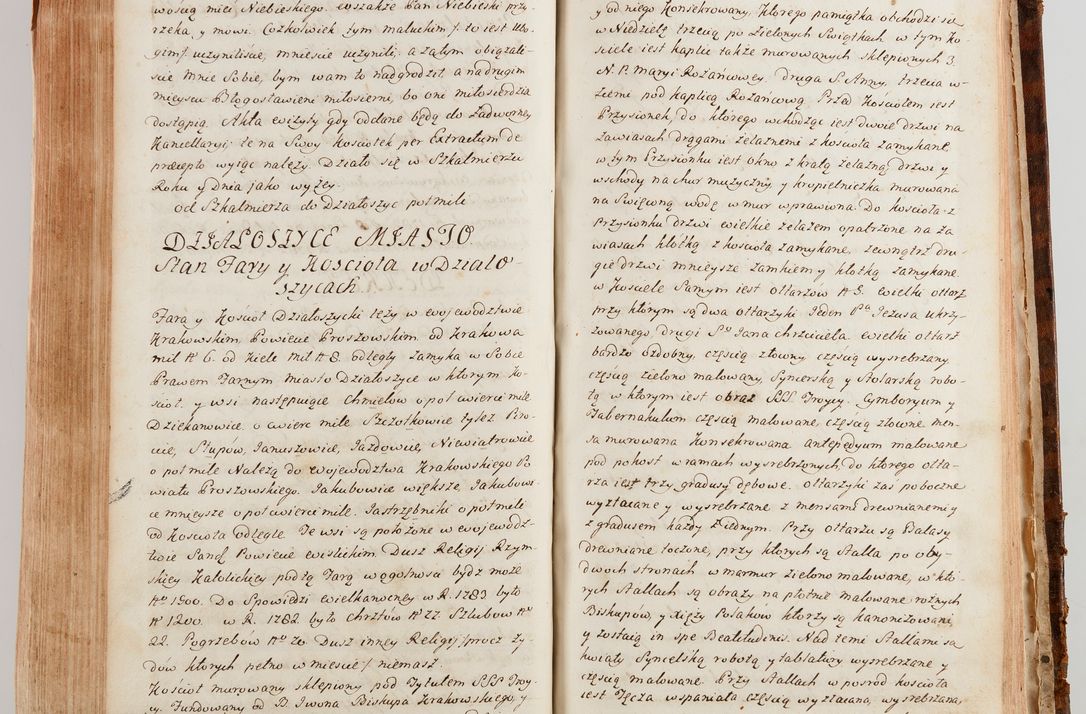 wością mieć Niebieskiego. wszakże Pan Niebieski przy-
rzeka, y mowi. Cożkolwiek tym maluckim /: to iest Ubo-
gim:/ uczyniliście, mnieście uczynili, a zatym obiązali-
ście mnie Sobie, bym wam to nadgrodził, a na drugim
mieyscu Błogosławieni miłosierni, bo oni miłosierdzia
dostąpią. Akta wizyty gdy oddane będą do Zadworney
Kancellaryi te na Swoy Kosciołek per Extractum de
præcepto wyiąc należy. Działo się w Szkalmierzu
Roku y Dnia jako wyżey.
od Szkalmierza do Działoszyc pół mile
DZIAŁOSZYCE MIASTO.
Stan Fary y Kościoła w Działo-
szycach
Fara y Kościoł Działoszycki leży w wojewodztwie
Krakowskim Powiecie Proszowskim, od Krakowa
mil Nº 6. od Kielc mil Nº 8. odległy zamyka w Sobie
Prawem Farnym miasto Działoszyce w ktorym Ko-
scioł. y wsi następuiące Chmielow o poł cwierci mile
Dziekanowice. o cwierc mile Szczotkowice tyleż Bro-
cice, Stępow, Januszowice, Jazdowice, Niewiatrowice
o poł mile Należą do wojewodztwa Krakowskiego Po
wiatu Proszowskiego. Jakubowice większe Jakubowi
ce mnieysze o poł cwierci mile. Jastrzębniki o poł mili
od Koscioła odległe. Te wsi są położone w wojewodz-
twie Sand. Powiecie wislickim Dusz Religij Rzym-
skiey Katolickiey pod tą Farą w ogolnosci bydź może
Nº 1900. Do Spowiedzi wielkanocney w R. 1783 było
Nº 1200. w R. 1782. było Chrztów Nº 77. Szlubow Nº
22. Pogrzebów Nº 20 Dusz inney Religij /: procz ży-
dów ktorych pełno w miescie :/ niemasz.
Kościoł murowany sklepiony pod Tytułem SSS Troy-
cy. Fundowany od B. Iwona Biskupa Krakowskiego, y
y od niego Konsekrowany, ktorego pamiątka obchodzi się
w Niedzielę trzecią po Zielonych Swiątkach. w tym Ko-
sciele iest kaplic także murowanych sklepionych 3.
N. P. Maryi Rożańcowey. druga S. Anny. trzecia w
ziemi pod kaplicą Rożańcową. Przed Kosciołem iest
Przysionek, do ktorego wchodząc iest dwoie drzwi na
zawiasach drągami żelaznemi z koscioła zamykane.
w tym Przysionku iest okno z kratą żelazną, drzwi y
wschody na chur muzyczny y kropielniczka murowana
na Swięconą wodę w mur wprawiona. Do koscioła z
Przysionku drzwi wielkie żelazem opatrzone na za
wiasach kłotką z koscioła zamykane. zewnątrz dru-
gie drzwi mnieysze zamkiem y kłotką zamykane.
w Kosciele Samym iest ołtarzow Nº 5. wielki ołtarz
przy ktorym są dwa ołtarzyki Jeden Pa Jezusa ukrzy-
żowanego, drugi Sº Jana chrzciciela. wielki ołtarz
bardzo ozdobny, częscią złocony częscią wysrebrzany,
częscią zielono malowany, Snycerską y Stolarską robo-
tą, w ktorym iest obraz SSS Troycy. Cymboryum y
Tabernakulum częscią malowane, częscią złocone, men-
sa murowana konsekrowana antepedyum malowane
pod pokost w ramach wysrebrzonych, do ktorego ołta-
rza iest trzy gradusy dębowe. ołtarzyki zaś poboczne
wyzłacane y wysrebrzane z mensami drewnianemi y
z gradusem każdy iednym. Przy ołtarzu są Balasy
drewniane toczone, przy ktorych są Stalla po oby-
dwoch stronach w marmur zielono malowane, w kto-
rych Stallach są obrazy na płotnie malowane rożnych
Biskupów, y Xięży Polakow ktorzy są kanonizowani
y zostaią in spe Beatitudinis. Nad temi Stallami są
kwiaty Snycelską robotą y tablatury wysrebrzane y
częscią malowane. Przy Stallach w posrod koscioła
iest Tęcza wspaniała częscią wyzłacana, wysrebrzana,